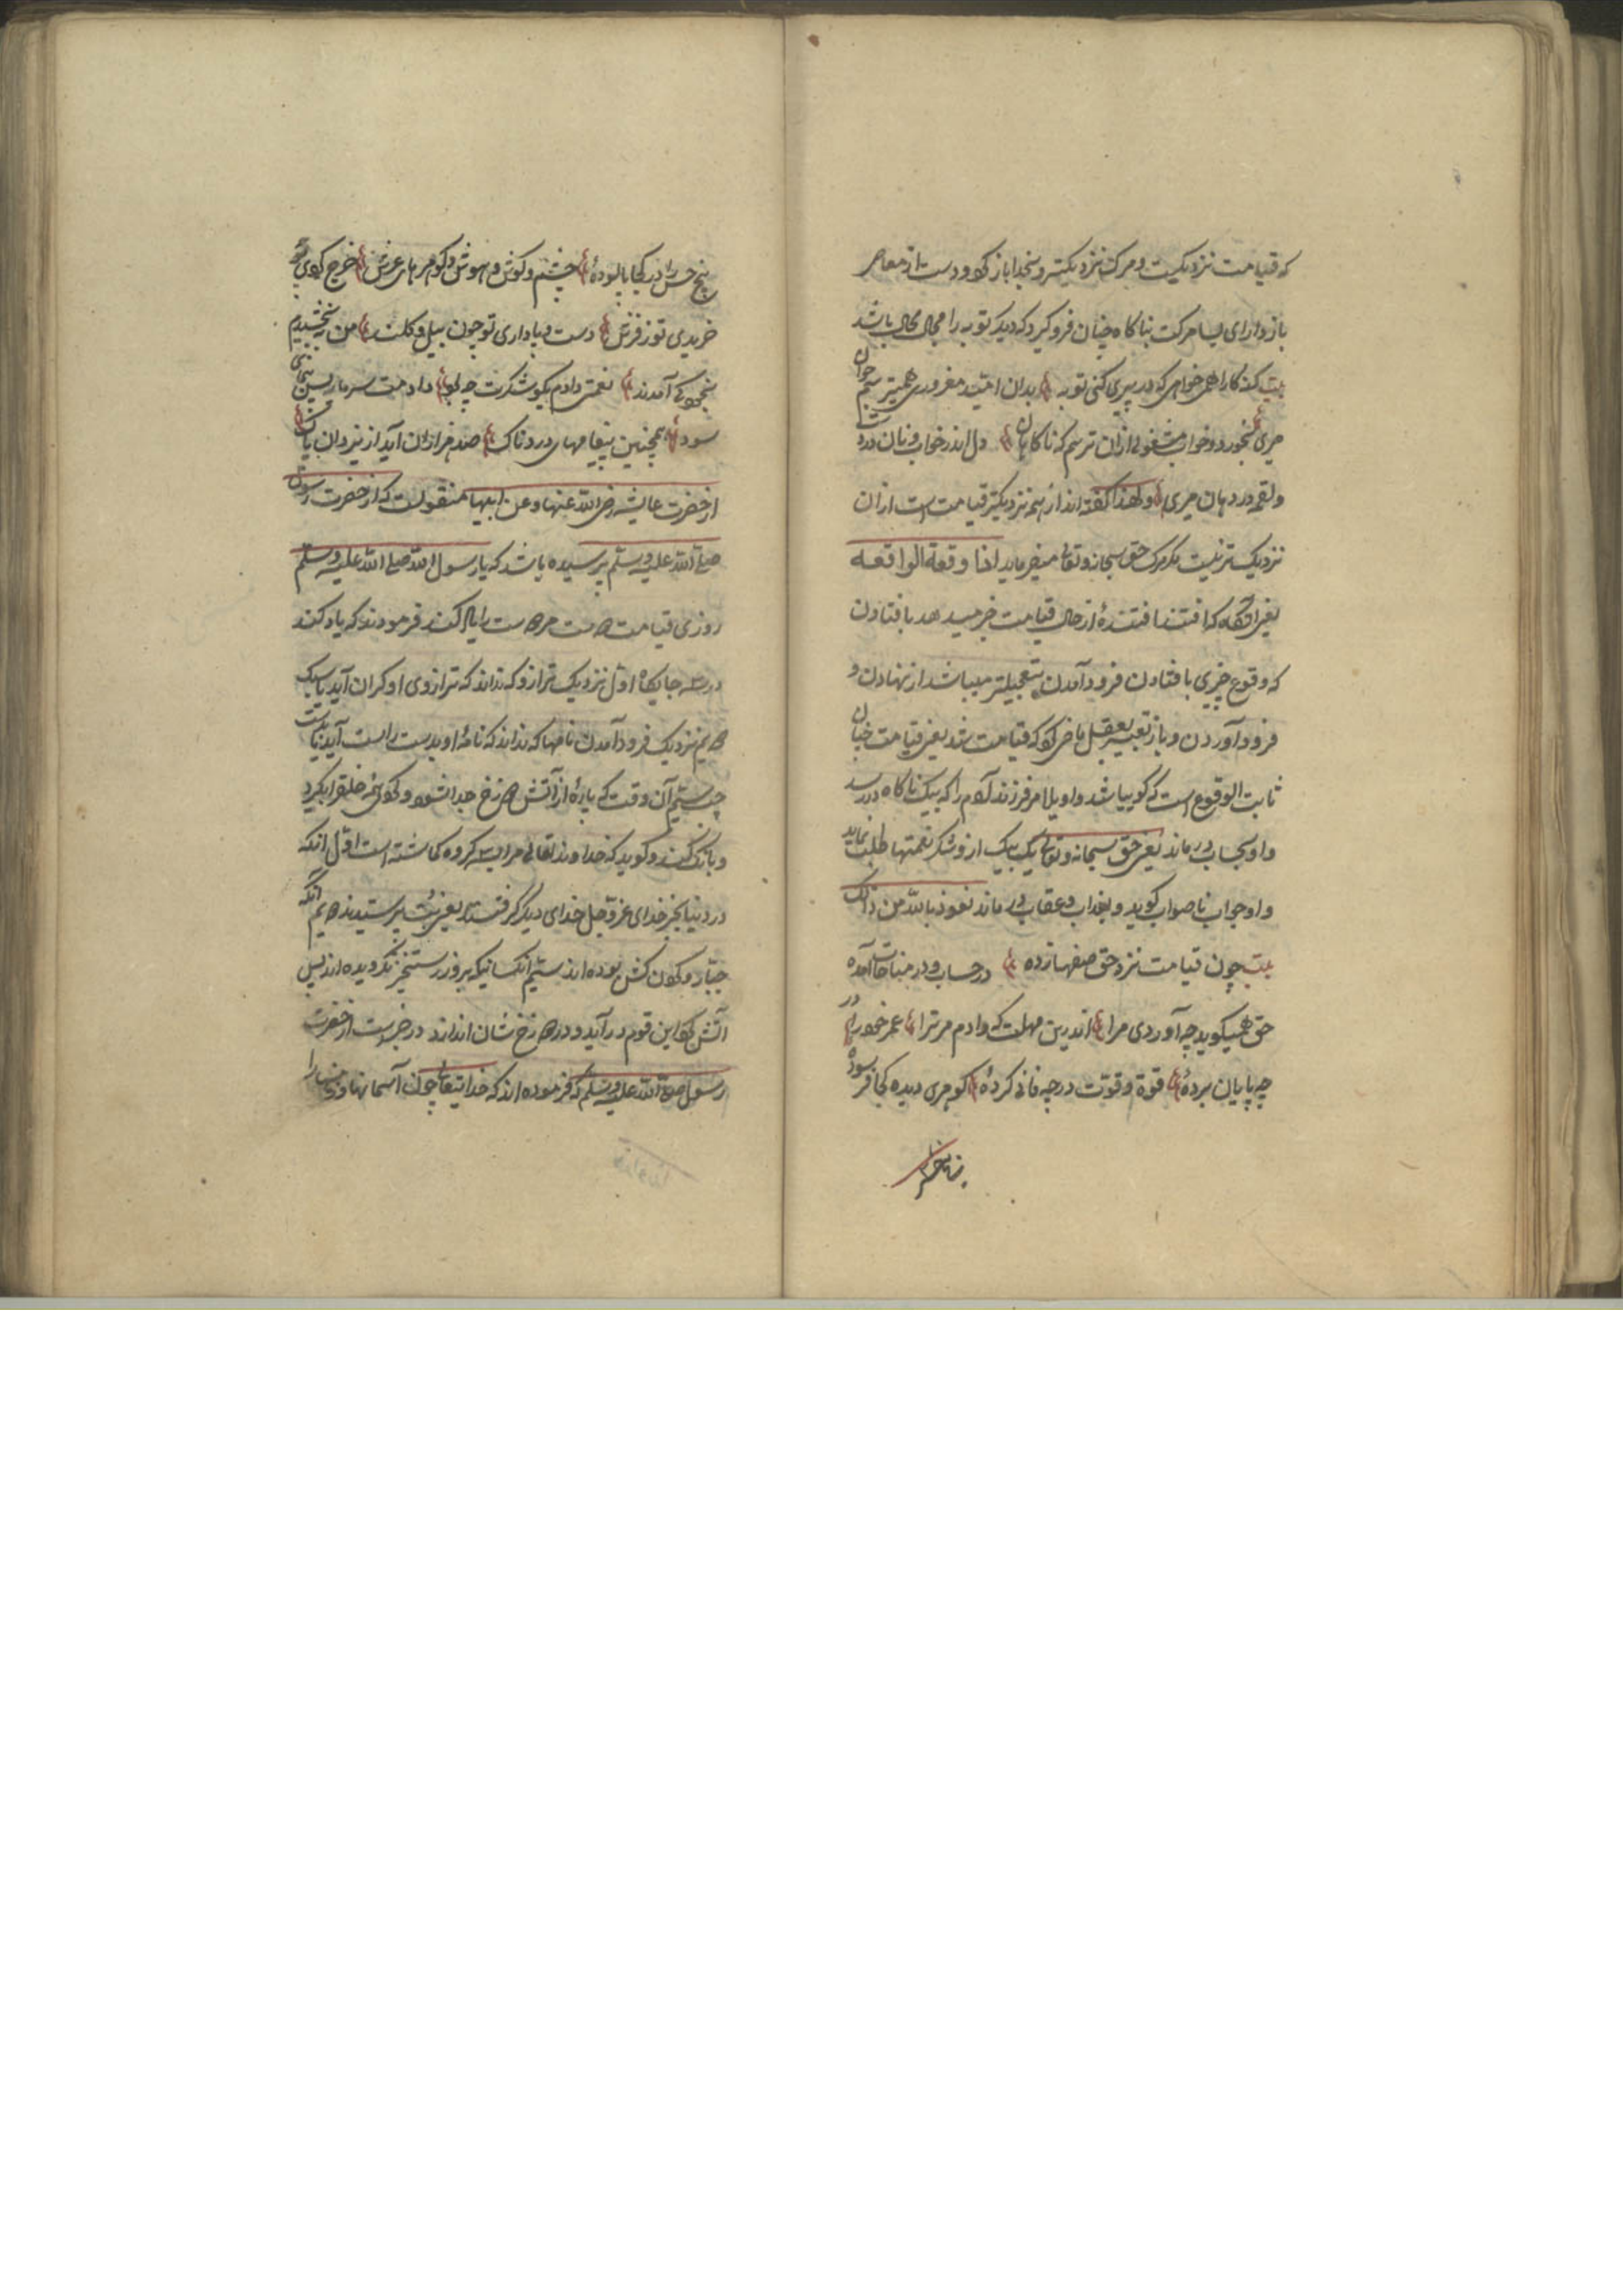 که قیامت نزدیکست و مرگ نزدیکتر و بخدا باز گرد و دست از معاصی
باز دار ای بسا مرگت بناگاه چنان فرو گیرد که دیگر توبه را مجال محال باشد
بیت گنه کارا همی خواهی که در پیری کنی توبه بدان امید مغروری همیترسم جوان
میری بخورد و خواب مشغولی ازان ترسم که ناگاهان دل اندر خواب و نان دردست
و لقمه در دهان میری و لهذا گفته اند از همه نزدیکتر قیامت است ازان
نزدیک تر نیست مگر مرگ حق سبحانه وتعالی میفرماید اذا وقعة الواقعه
یعنی آنگاه که افتد افتندهٔ از حال قیامت خبر میدهد بافتادن
که وقوع چیزی بافتادن فرود آمدن بتعجیلتر میباشد از نهادن و
فرود آوردن و باز تعبیر بفعل ماضی کرد که قیامت شد یعنی قیامت چنان
ثابت الوقوع است که گوییا شد واویلا مر فرزند آدم را که بیک ناگاه در رسد
و او بحساب درماند یعنی حق سبحانه وتعالی یک بیک ازو شکر نعمتها طلب نماید
و او جواب ناصواب گوید و بعذاب و عقاب درماند نعوذ بالله من ذالک
بیت چون قیامت نزد حق صفها زده در حساب و در مناجات آمده
حق همیگوید چه آوردی مرا اندرین مهلت که دادم مر ترا عمر خود را در
چه پایان بردهٔ قوة و قوتت در چه فانی کردهٔ گوهری دیده کجا فرسودهٔ
پنج حس را
پنج حس را در کجا پالودهٔ چشم و گوش و هوش و گوهرهای عرش خرج کردی چه
خریدی تو ز فرش دست و پا دادی تو چون بیل و کلند من ببخشیدم
بخود کی آمدند نعمتی دادم بگو شکرت چه بود دادمت سرمایه بین بنمای
سود همچنین پیغامهای دردناک صد هزاران آید از یزدان پاک
از حضرت عایشه رضی الله عنها و عن ابیها منقولست که از حضرت رسول
صلی الله علیه وسلم پرسیده باشد که یا رسول الله صلی الله علیه وسلم
روز قیامت دوست مر دوست را یاد کند فرمودند که یاد کند
در سه جایگاه اول نزدیک ترازو که نداند که ترازوی او گران آید یا سبک
دویم نزدیک فرود آمدن نامها که نداند که نامهٔ او بدست راست آید یا بدست
چپ سیم آن وقت که پارهٔ از آتش دوزخ جدا شود و همه خلق را بگیرد
و بانگ کند و گوید که خداوند تعالی مرا بسه گروه گماشته است اول آنکه
در دنیا بجز خدای عز و جل خدای دیگر گرفتند یعنی بت پرستیدند دویم آنکه
جبار و گردن کش بوده اند سیم آنکسانیکه بروز رستخیز نگرویده اند پس
آتش گرد این قوم در آید و در دوزخ شان اندازد در خبرست از حضرت
رسول صلی الله علیه وسلم که فرموده اند که خدایتعالی چون آسمانها و زمین را